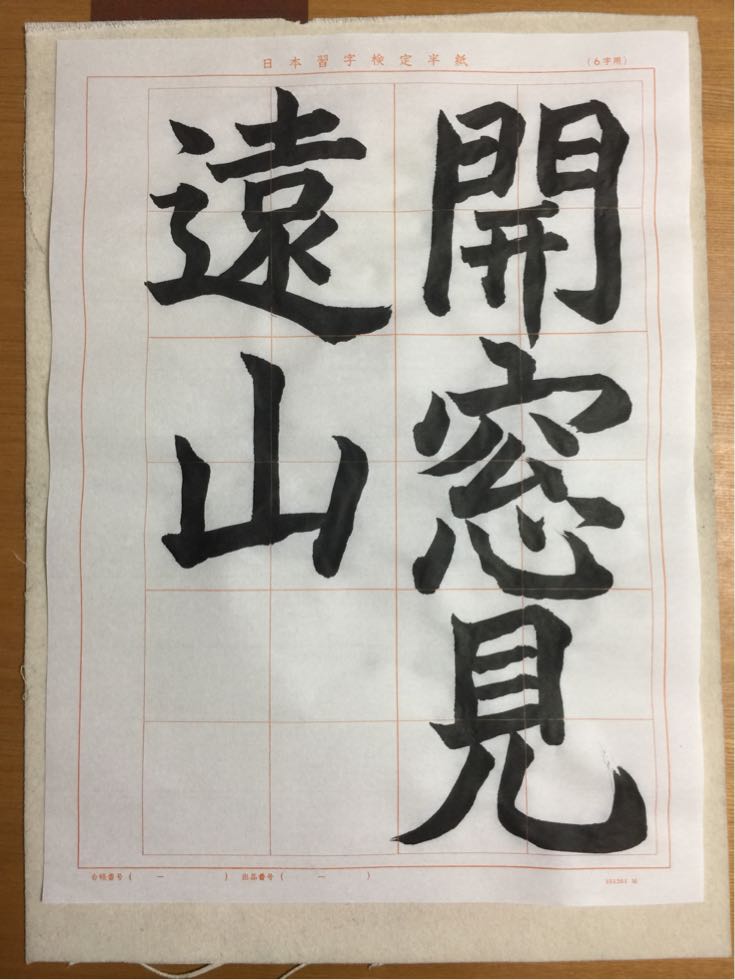 日本習字検定半紙
(6字用)
開窓見
遠山
台帳番号 (　　―　　　)　出品番号 (　　―　　　)